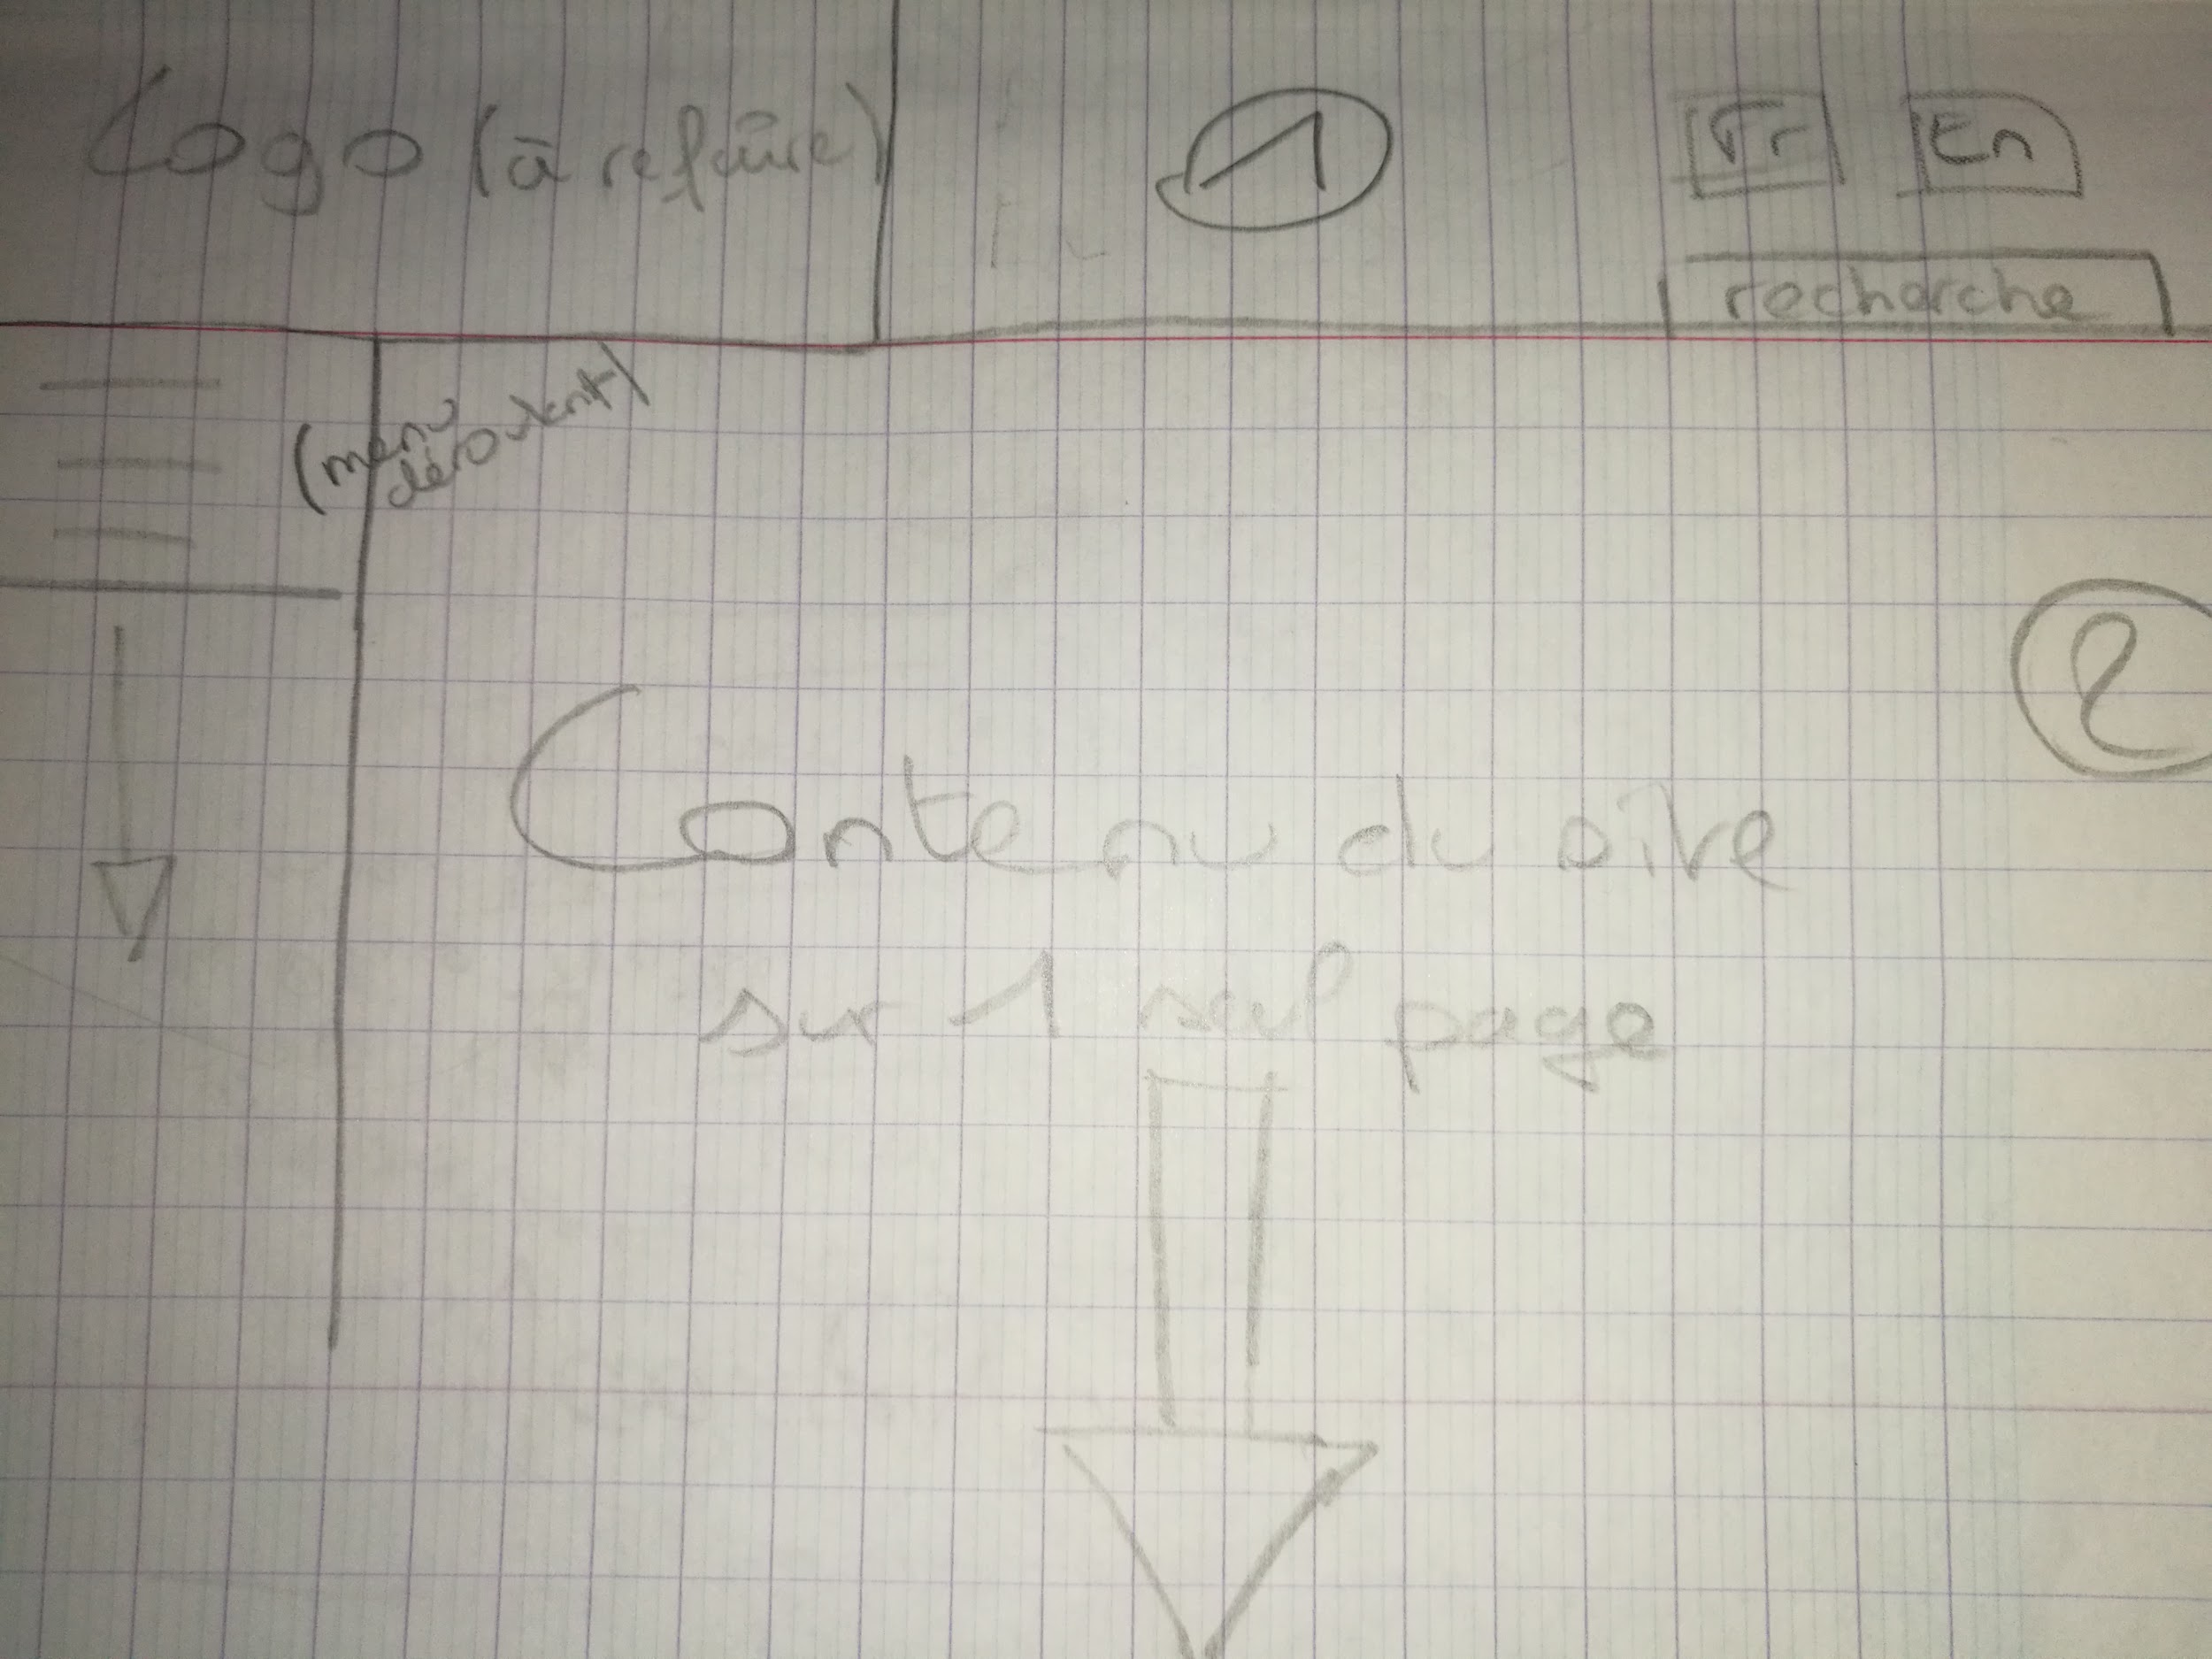 Logo (à refaire)
1
Fr
En
recherche
(menu
déroulant)
2
Contenu du site
sur 1 seul page